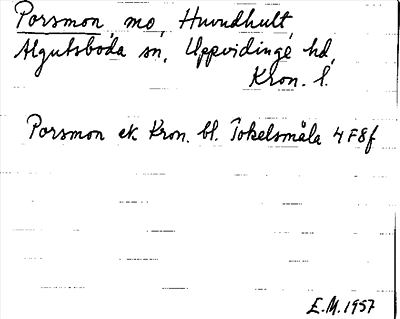 Porsmon mo, Huvudhult
Algutsboda sn, Uppvidinge hd,
Kron. l.
Porsmon ek Kron. bl. Tokelsmåla 4F8f
E.M. 1957